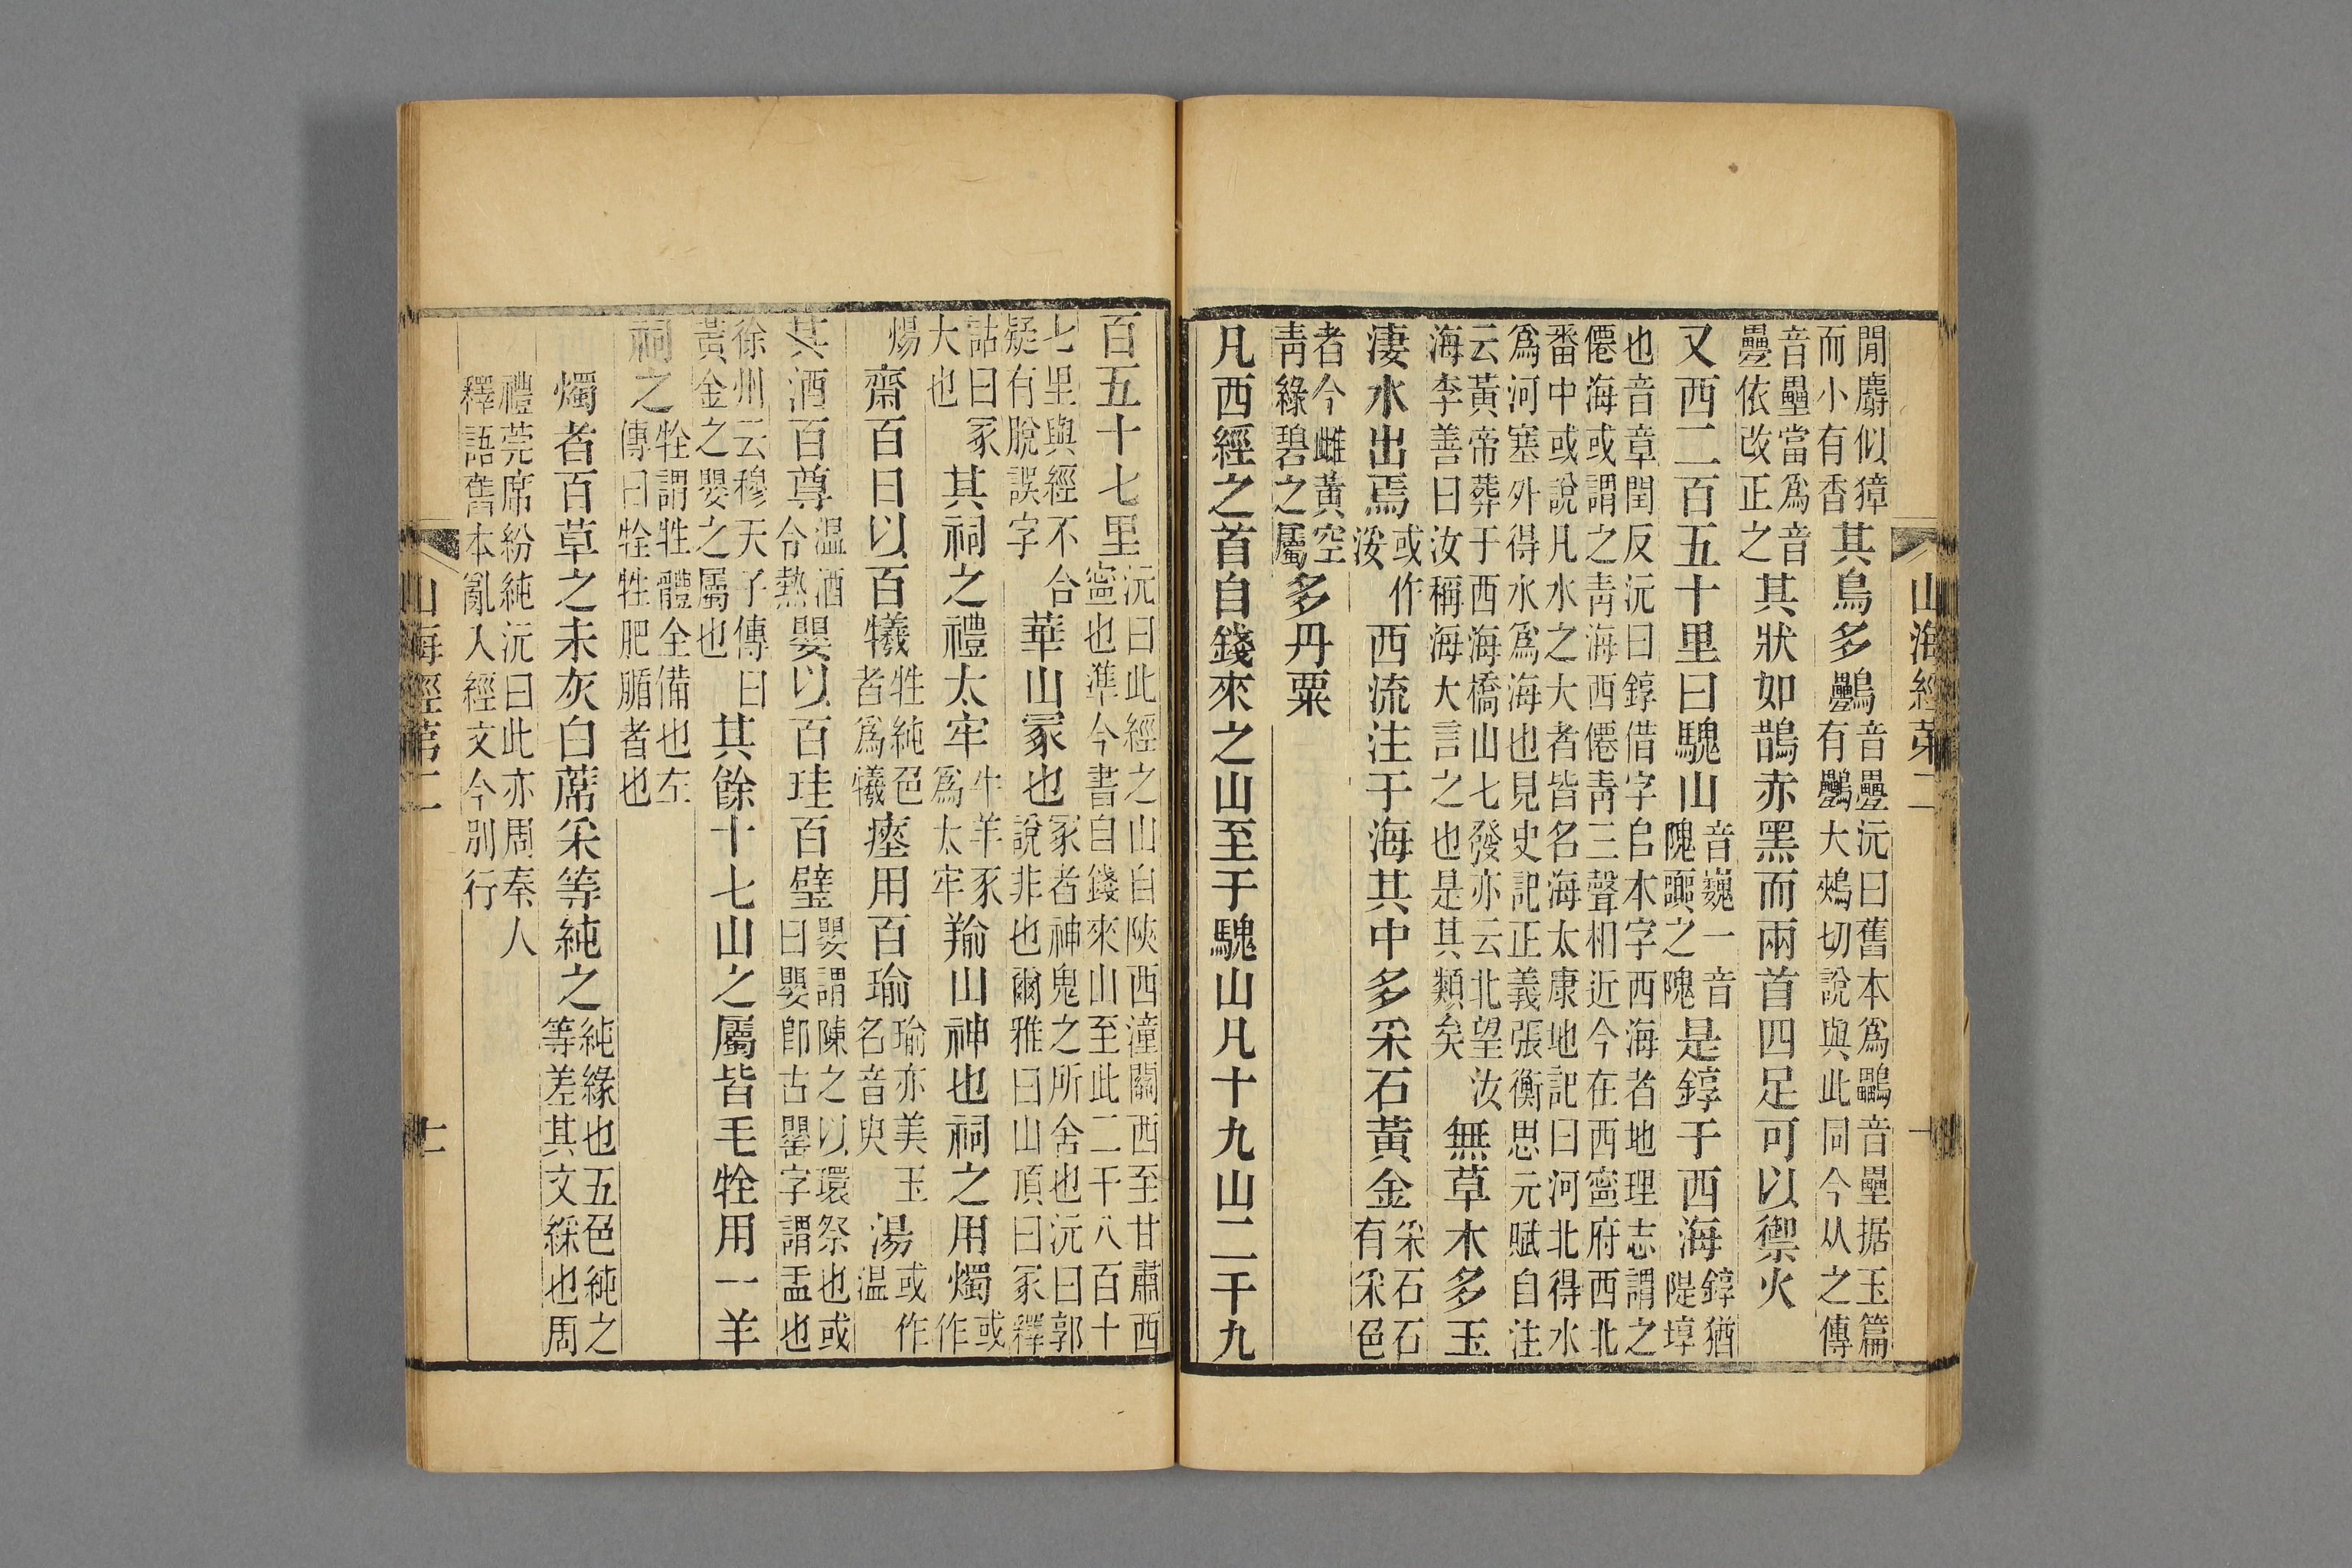 山海經第二　十
閒麝似獐
而小有香
其鳥多鸓
音疊沅曰舊本爲鸓音壘据玉篇
有鸓大鵜切說與此同今从之傳
音壘當爲音
疊依改正之
其狀如鵲赤黑而兩首四足可以禦火
又西二百五十里曰騩山
音巍一音
隗嚻之隗
是錞于西海
錞猶
隄埻
也音章閏反沅曰錞借字㠯本字西海者地理志謂之
僊海或謂之靑海西僊靑三聲相近今在西寧府西北
番中或說凡水之大者皆名海太康地記曰河北得水
爲河塞外得水爲海也見史記正義張衡思元賦自注
云黃帝葬于西海橋山七發亦云北望汝
海李善曰汝稱海大言之也是其類矣
無草木多玉
淒水出焉
或作
浽
西流注于海其中多采石黃金
采石石
有采色
者今雌黃空
靑綠碧之屬
多丹粟
凡西經之首自錢來之山至于騩山凡十九山二千九
百五十七里
沅曰此經之山自陝西潼關西至甘肅西
寧也準今書自錢來山至此二千八百十
七里與經不合
疑有脫誤字
華山冢也
冢者神鬼之所舍也沅曰郭
說非也爾雅曰山頂曰冢釋
詁曰冢
大也
其祠之禮太牢
牛羊豕
爲太牢
羭山神也祠之用燭
或
作
煬
齋百日以百犧
牲純色
者爲犧
瘞用百瑜
瑜亦美玉
名音臾
湯
或作
温
其酒百尊
温酒
令熱
嬰以百珪百璧
嬰謂陳之以環祭也或
曰嬰卽古罌字謂盂也
徐州云穆天子傳曰
黃金之嬰之屬也
其餘十七山之屬皆毛牷用一羊
祠之
牷謂牲體全備也左
傳曰牷牲肥腯者也
燭者百草之未灰白蓆采等純之
純緣也五色純之
等差其文綵也周
禮莞席紛純沅曰此亦周秦人
釋語舊本亂入經文今別行
山海經第二　十